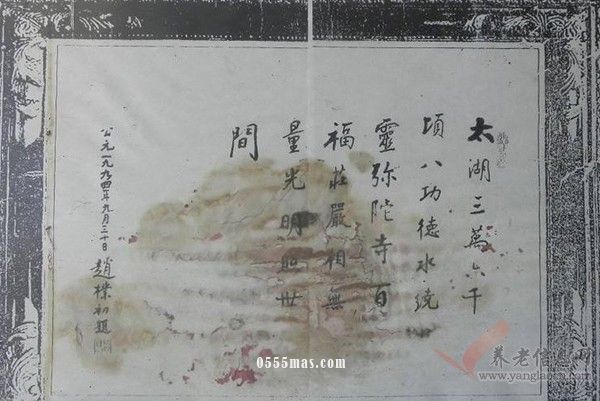 太湖三萬六千
頃八功德水繞
靈弥陀寺百
福莊嚴相無
量光明照世
間
公元一九九四年九月三十日
趙樸初題
0555mas.com
养老信息网
www.yanglaocn.com